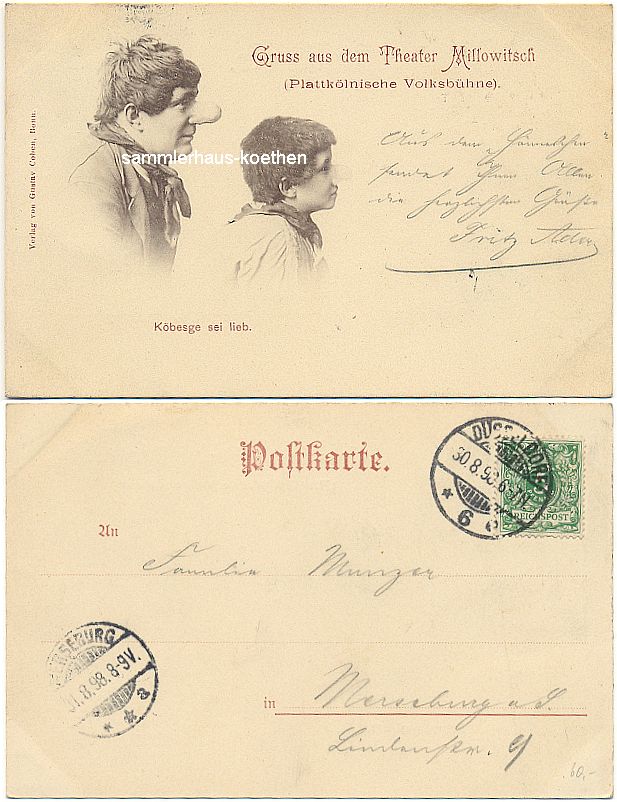 Gruss aus dem Theater Millowitsch
(Plattkölnische Volksbühne).
Verlag von Gustav Cohen, Bonn.
sammlerhaus-koethen
Aus dem "Hännschen"
sendet Ihnen Allen
die herzlichsten Grüße
Fritz Adler
Köbesge sei lieb.
Postkarte.
DÜSSELDORF
30.8.98.6-7N.
* 6 *
REICHSPOST
An
Familie Munzer
MERSEBURG
31.8.98.8-9V.
* * a
in Merseburg a.S.
Lindenstr. 9
60,-